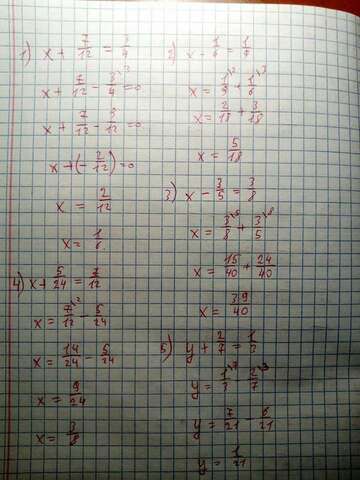 1) x + 7/12 = 3/4
x + 7/12 - 3/4 ³ = 0
x + 7/12 - 9/12 = 0
x + (- 2/12) = 0
x = 2/12
x = 1/6
2) x - 1/6 = 1/9
x = 1/9 ² + 1/6 ³
x = 2/18 + 3/18
x = 5/18
3) x - 3/5 = 3/8
x = 3/8 ⁵ + 3/5 ⁸
x = 15/40 + 24/40
x = 39/40
4) x + 5/24 = 7/12
x = 7/12 ² - 5/24
x = 14/24 - 5/24
x = 9/24
x = 3/8
5) y + 2/7 = 1/3
y = 1/3 ⁷ - 2/7 ³
y = 7/21 - 6/21
y = 1/21